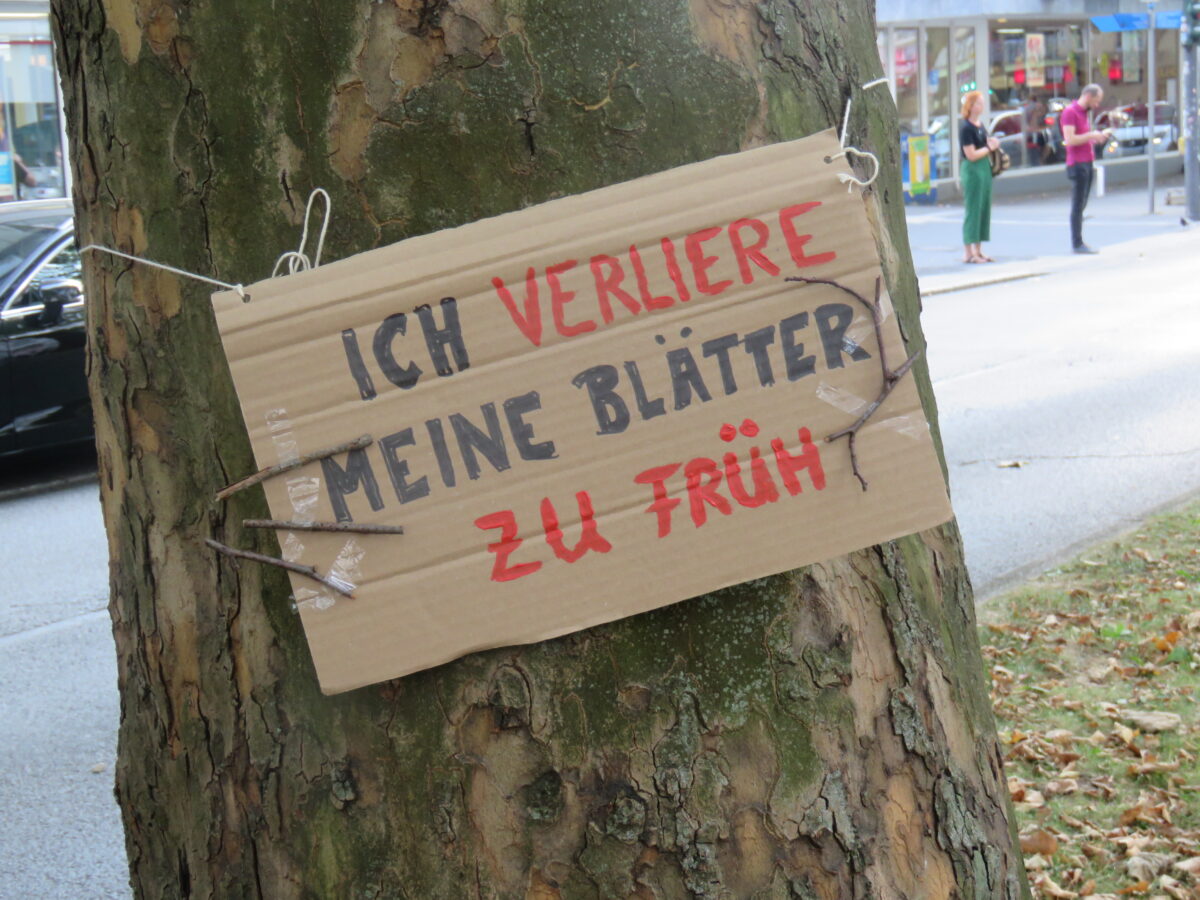 ICH VERLIERE
MEINE BLÄTTER
ZU FRÜH